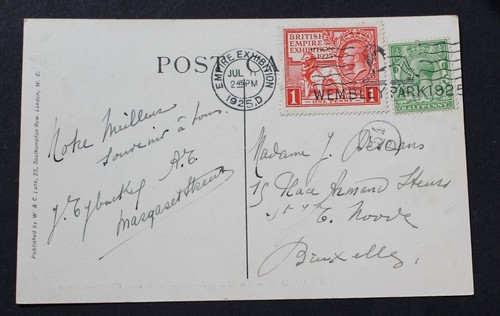 POST
BRITISH
EMPIRE
EXHIBITION
1925
1 ONE PENNY 1
HALFPENNY
EMPIRE EXHIBITION
JUL
2 45 PM
1925.D
WEMBLEY PARK 1925
Published by W & C. Lane, 29, Southampton Row, London, W. C.
Notre meilleur
souvenir à tous.
Margaret
Madame J.
15 Place Armand Steurs
Bruxelles